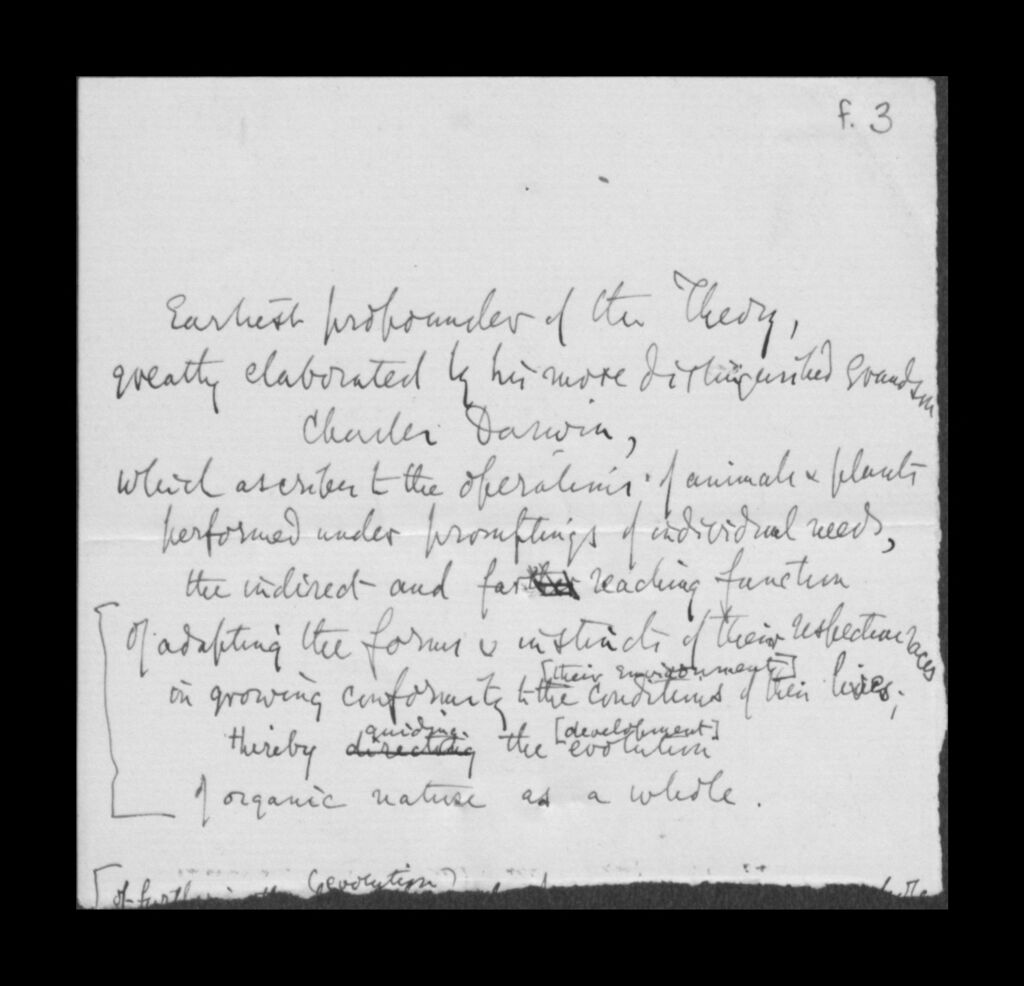 f. 3
Earliest propounder of the Theory,
greatly elaborated by his more distinguished Grandson
Charles Darwin,
which ascribes to the operations of animals & plants
performed under promptings of individual needs,
the indirect and far reaching function
of adapting the forms & instincts of their respective races
[their environment]
in growing conformity to the conditions of their lives,
guiding [development]
thereby directing the evolution
of organic nature as a whole.
(evolution)
[of